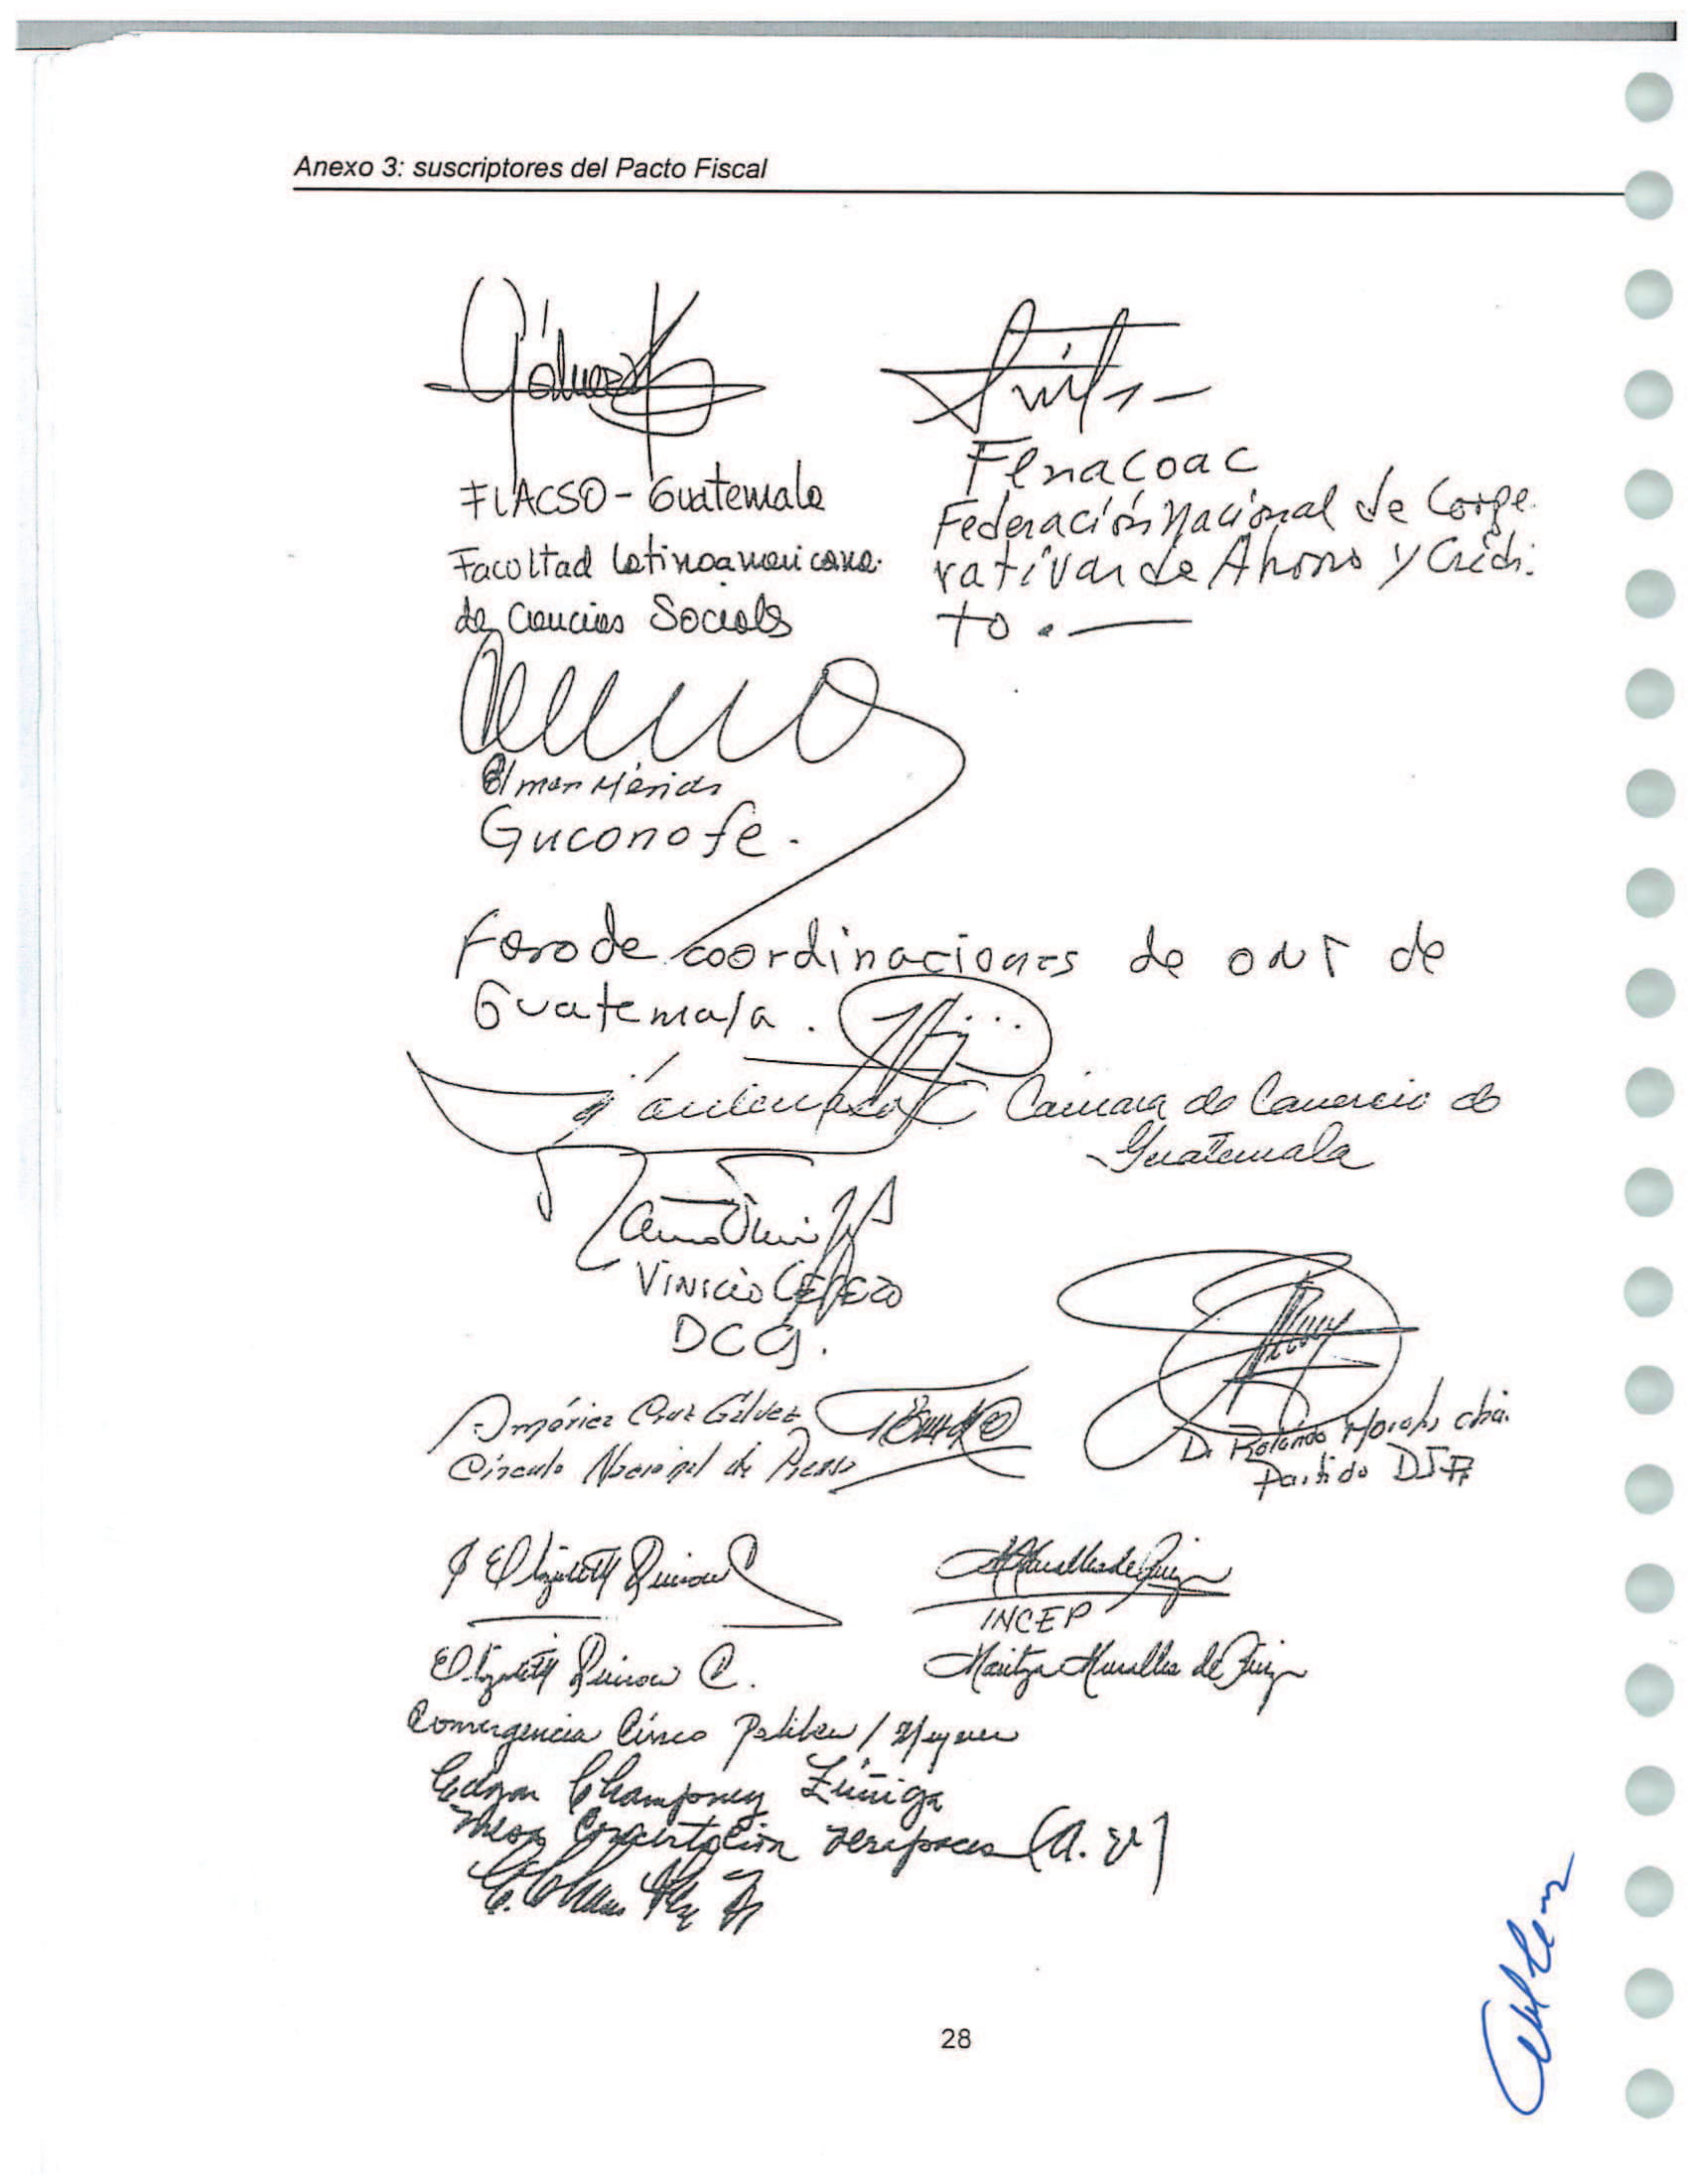 Anexo 3: suscriptores del Pacto Fiscal
FLACSO - Guatemala
Facultad Latinoamericana
de Ciencias Sociales
Fenacoac
Federación Nacional de Coope
rativas de Ahorro y Crédi
to . —
Elmer Mérida
Guconofe.
Foro de coordinaciones de ONG de
Guatemala.
Cámara de Comercio de
Guatemala
Vinicio Cerezo
DCG.
Américo Cruz Gálvez
Círculo Nacional de Prensa
D. Rolando Morales
Partido
Elizabeth Quiroa C.
Convergencia Cívico Política / Mujeres
INCEP
Maritza Muralles de
Edgar Champney Zúñiga
Mesa Concertación Verapaces (A.V)
28